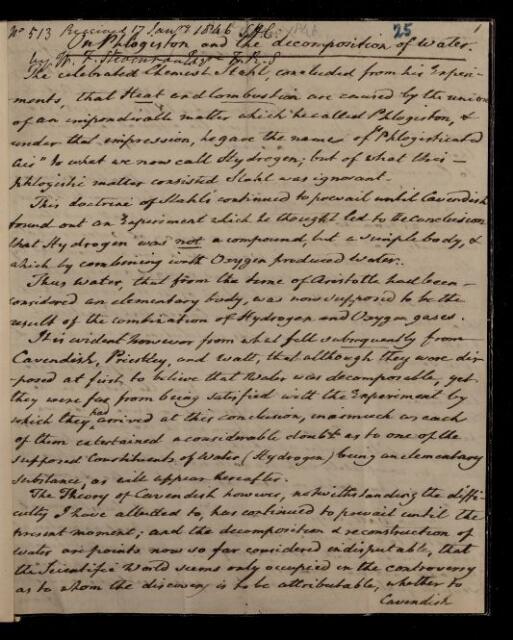 No 513 Received 17 Jany 1846 25 1
On Phlogiston and the decomposition of Water.
by W. F. F.R.S
The celebrated Chemist Stahl, concluded from his Experi-
ments, that Heat and Combustion are caused by the union
of an imponderable matter which he called Phlogiston, &
under that impression, he gave the name of "Phlogisticated
Air" to what we now call Hydrogen; but of what this —
phlogistic matter consisted Stahl was ignorant.
This doctrine of Stahl's continued to prevail until Cavendish
found out an Experiment which he thought led to the conclusion
that Hydrogen was not a compound, but a simple body, &
which by combining with Oxygen produced Water.
Thus Water, that from the time of Aristotle had been —
considered an elementary body, was now supposed to be the
result of the combination of Hydrogen and Oxygen gases.
It is evident however from what fell subsequently from
Cavendish, Priestley, and Watt, that although they were dis-
-posed at first to believe that Water was decomposable, yet
they were far from being satisfied with the Experiment by
which they had arrived at this conclusion, inasmuch as each
of them entertained a considerable doubt as to one of the
supposed Constituents of Water (Hydrogen) being an elementary
substance, as will appear hereafter.
The Theory of Cavendish however, notwithstanding the diffi-
culty I have alluded to, has continued to prevail until the
present moment; and the decomposition & reconstruction of
water are points now so far considered indisputable, that
the Scientific World seems only occupied in the controversy
as to whom the discovery is to be attributable, whether to
Cavendish